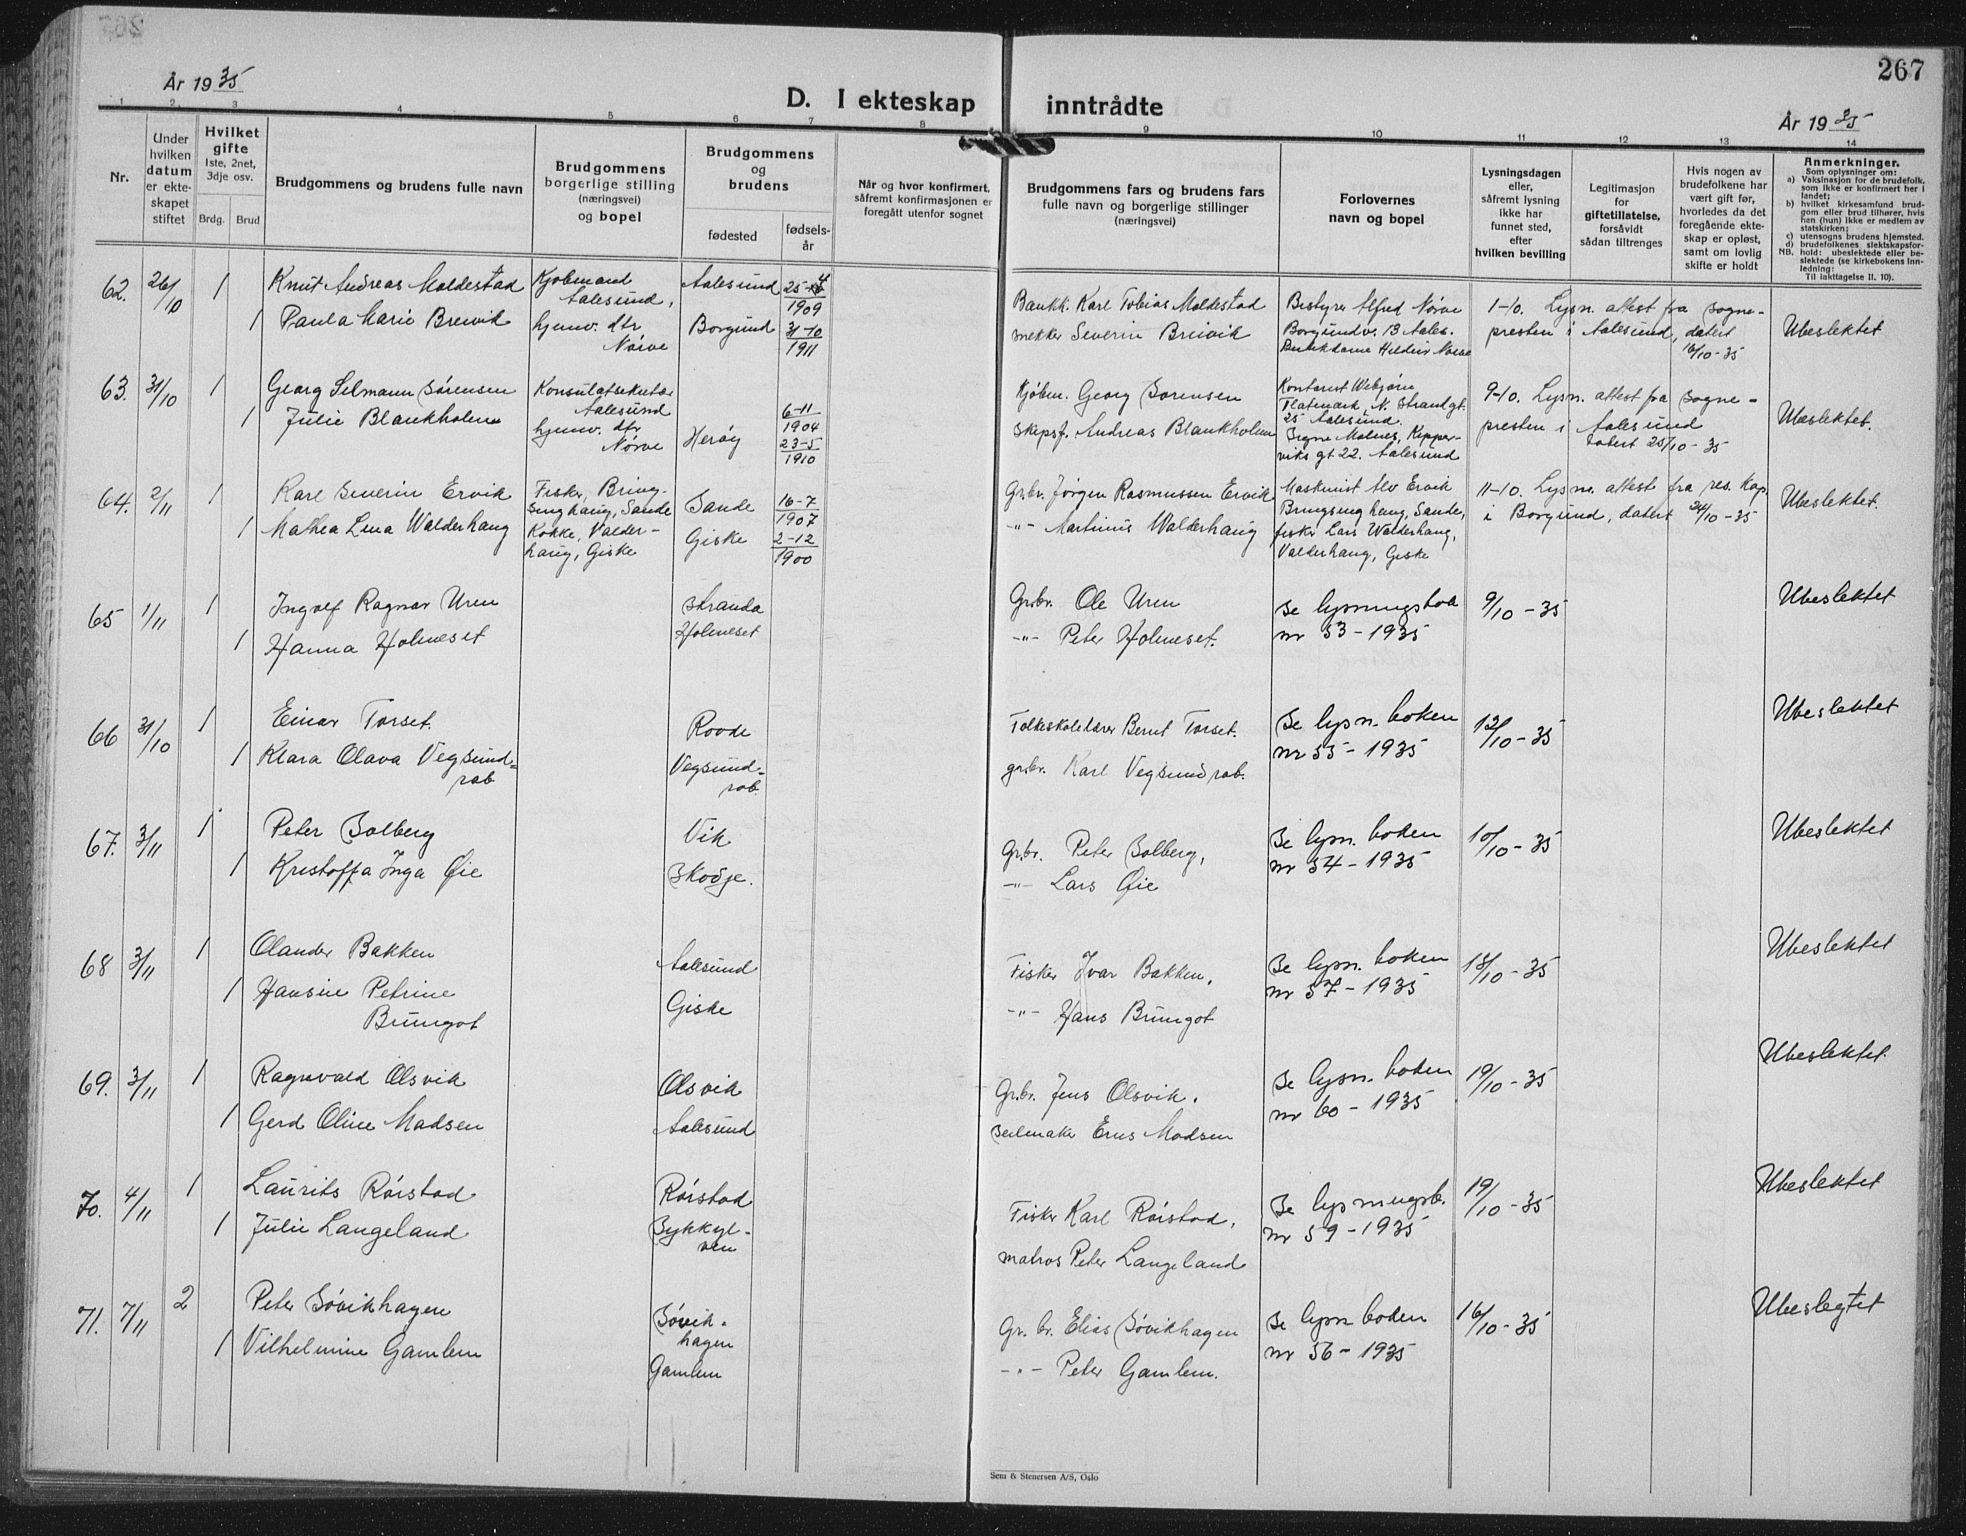 267
År 1935
D. I ekteskap inntrådte
År 1935
1 2 3 4 5 6 7 8 9 10 11 12 13 14
Nr.
Under
hvilken
datum
er ekte-
skapet
stiftet
Hvilket
gifte
1ste, 2net,
3dje osv.
Brdg. Brud
Brudgommens og brudens fulle navn
Brudgommens
borgerlige stilling
(næringsvei)
og bopel
Brudgommens
og
brudens
fødested
fødsels-
år
Når og hvor konfirmert,
såfremt konfirmasjonen er
foregått utenfor sognet
Brudgommens fars og brudens fars
fulle navn og borgerlige stillinger
(næringsvei)
Forlovernes
navn og bopel
Lysningsdagen
eller,
såfremt lysning
ikke har
funnet sted,
efter
hvilken bevilling
Legitimasjon
for
giftetillatelse,
forsåvidt
sådan tiltrenges
Hvis nogen av
brudefolkene har
vært gift før,
hvorledes da det
foregående ekte-
skap er opløst,
samt om lovlig
skifte er holdt
Anmerkninger.
Som oplysninger om:
a) Vaksinasjon for de brudefolk,
som ikke er konfirmert her i
landet;
b) hvilket kirkesamfund brud-
gom eller brud tilhører, hvis
han (hun) ikke er medlem av
statskirken;
c) utensogns brudens hjemsted.
d) brudefolkenes slektskapsfor-
NB. hold: ubeslektede eller be-
slektede (se kirkebokens inn-
ledning:
Til iakttagelse II. 10).
62. 26/10 1 Knut Andreas Moldestad
1 Paula Marie Breivik
Kjøbmand
Aalesund,
hjemv. dtr
Nørve
Aalesund 1909
Borgund 31-10 1911
Bankk. Karl Tobias Moldestad
Severin Breivik
Bestyrer Alfred Nørve
Borgundv. 13 Aales.
1-10. Lysn. attest fra Sogne-
presten i Aalesund, datert
16/10-35
Ubeslektet
63. 31/10 1 Georg Selmann Sørensen
1 Julie Blankholm
Konsulatsekretær
Aalesund
hjemv. dtr
Nørve
6-11 1904
Herøy 23-5 1910
Kjøbm. Georg Sørensen
Skipsf. Andreas Blankholm
Kontorist
Flatmark, N. Strandgt.
25 Aalesund.
Signe Molnes, Kipper-
viks gt 22. Aalesund
9-10. Lysn. attest fra Sogne-
presten i Aalesund
datert 25/10-35
Ubeslektet.
64. 2/11 1 Karl Severin Ervik
1 Mathea Lena Walderhaug
Fisker, Bring-
singhaug, Sande
Kokke, Valder-
haug, Giske
Sande 16-7 1907
Giske 2-12 1900
Grbr. Jørgen Rasmussen Ervik
-"- Martinus Walderhaug
Maskinist Alv Ervik
Bringsinghaug, Sande,
fisker Lars Walderhaug,
Valderhaug, Giske
11-10. Lysn. attest fra res. Kap.
i Borgund, datert 24/10-35
Ubeslektet.
65 1/11 1 Ingolf Ragnar Uren
1 Hanna Holmeset
Stranda
Holmeset
Grbr. Ole Uren
-"- Peter Holmeset.
Se lysningsbok
nr 53-1935
9/10-35
Ubeslektet
66 31/10 1 Einar Torset.
1 Klara Olava Vegsund=
rab
Rovde
Vegsund=
rab.
Folkeskolelærer Bernt Torset.
grbr. Karl Vegsundrab.
Se lysn. boken
nr 55-1935
12/10-35
Ubeslektet
67. 3/11 1 Peter Solberg
1 Kristoffa Inga Øie
Vik
Skodje.
Grbr. Peter Solberg,
-"- Lars Øie
Se lysn. boken
nr 54-1935
10/10-35
Ubeslektet
68 3/11 1 Olander Bakken
1 Hansine Petrine
Brungot
Aalesund
Giske
Fisker Ivar Bakken,
-"- Hans Brungot
Se lysn. boken
nr 57-1935
18/10-35
Ubeslektet
69. 3/11 1 Ragnvald Olsvik
1 Gerd Oline Madsen
Olsvik
Aalesund
Grbr. Jens Olsvik.
Seilmaker Madsen
Se lysn. boken
nr 60-1935
19/10-35
Ubeslektet
70. 4/11 1 Laurits Rørstad
1 Julie Langeland
Rørstad
Sykkyl-
ven
Fisker Karl Rørstad,
matros Peter Langeland
Se lysningsb.
nr 59-1935
19/10-35
Ubeslektet
71. 7/11 2 Peter Søvikhagen
1 Vilhelmine Gamlem
Søvik-
hagen
Gamlem
Gr. br. Elias Søvikhagen
-"- Peter Gamlem.
Se lysn boken
nr 56-1935
16/10-35
Ubeslegtet
Sem & Stenersen A/S, Oslo